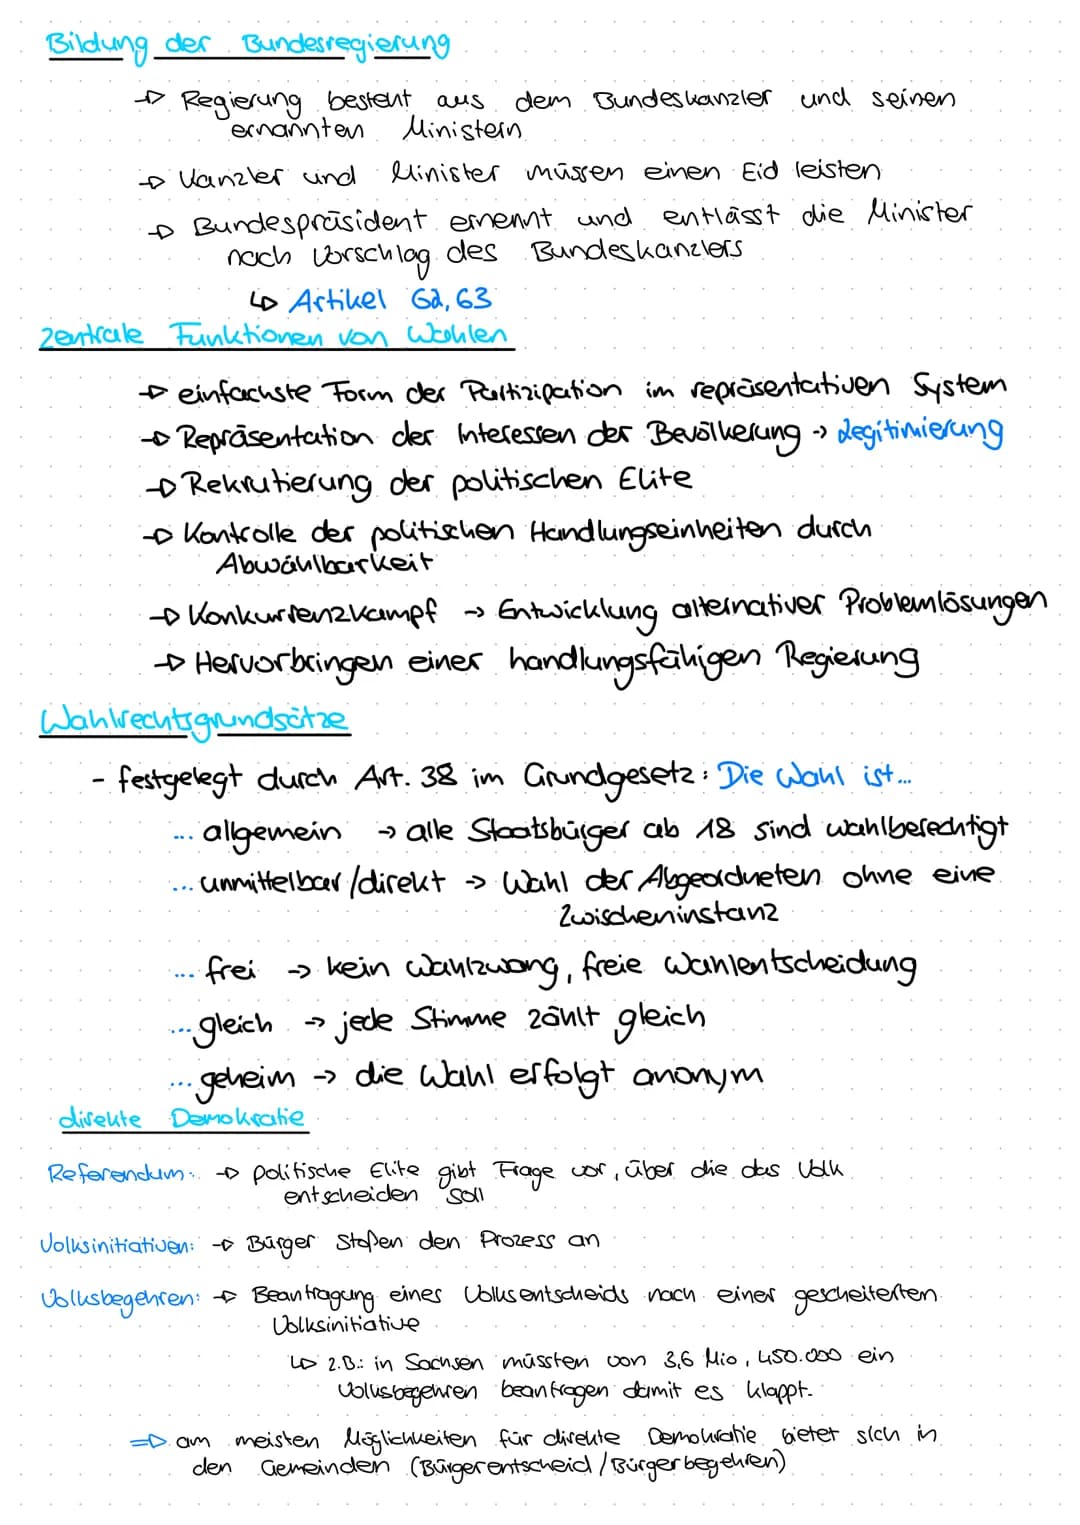 Bildung der Bundesregierung
→ Regierung besteht aus dem Bundeskanzler und seinen
ernannten Ministern
→ Kanzler und Minister müssen einen Eid leisten
→ Bundespräsident ernennt und entlässt die Minister
nach Vorschlag des Bundeskanzlers
↳ Artikel 62, 63
Zentrale Funktionen von Wahlen
→ einfachste Form der Partizipation im repräsentativen System
→ Repräsentation der Interessen der Bevölkerung → Legitimierung
→ Rekrutierung der politischen Elite
→ Kontrolle der politischen Handlungseinheiten durch
Abwählbarkeit
→ Konkurrenzkampf → Entwicklung alternativer Problemlösungen
→ Hervorbringen einer handlungsfähigen Regierung
Wahlrechtsgrundsätze
- festgelegt durch Art. 38 im Grundgesetz: Die Wahl ist...
... allgemein → alle Staatsbürger ab 18 sind wahlberechtigt
... unmittelbar/direkt → Wahl der Abgeordneten ohne eine
Zwischeninstanz
... frei → kein Wahlzwang, freie Wahlentscheidung
... gleich → jede Stimme zählt gleich
... geheim → die Wahl erfolgt anonym
direkte Demokratie
Referendum: → politische Elite gibt Frage vor, über die das Volk
entscheiden soll
Volksinitiativen: → Bürger stoßen den Prozess an
Volksbegehren: → Beantragung eines Volksentscheids nach einer gescheiterten
Volksinitiative
↳ z.B.: in Sachsen müssten von 3,6 Mio, 450.000 ein
Volksbegehren beantragen damit es klappt.
⇒ am meisten Möglichkeiten für direkte Demokratie bietet sich in
den Gemeinden (Bürgerentscheid / Bürgerbegehren)